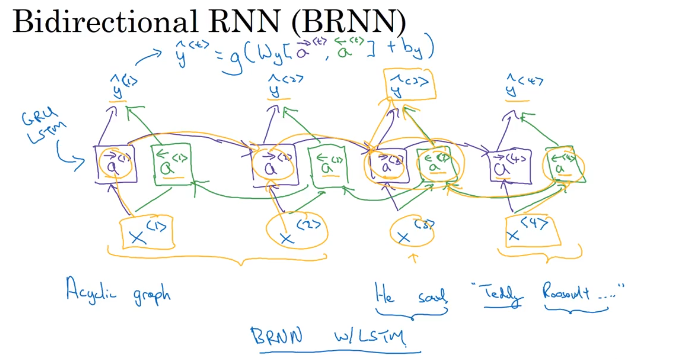 Bidirectional RNN (BRNN)
ŷ<t> = g(Wy[a→<t>, a←<t>] + by)
ŷ<1> ŷ<2> ŷ<3> ŷ<4>
GRU
LSTM
a→<1> a←<1> a→<2> a←<2> a→<3> a←<3> a→<4> a←<4>
x<1> x<2> x<3> x<4>
Acyclic graph He said, "Teddy Roosevelt ...."
BRNN w/LSTM